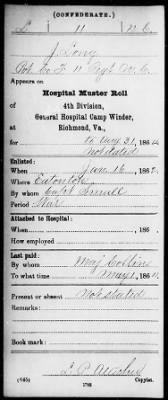 (CONFEDERATE.)
L 11 N.C.
J Long
Pvt. Co. F, 11 Regt. N.C.
Appears on
Hospital Muster Roll
of
4th Division,
General Hospital Camp Winder,
at
Richmond, Va.,
for to Aug 31, 186
not dated
Enlisted:
When June 16, 186
Where
By whom Capt Small
Period War
Attached to Hospital:
When , 186 .
How employed
Last paid:
By whom Maj
To what time May 1, 186
Present or absent Not stated
Remarks:
Book mark:
(645)
Copyist.